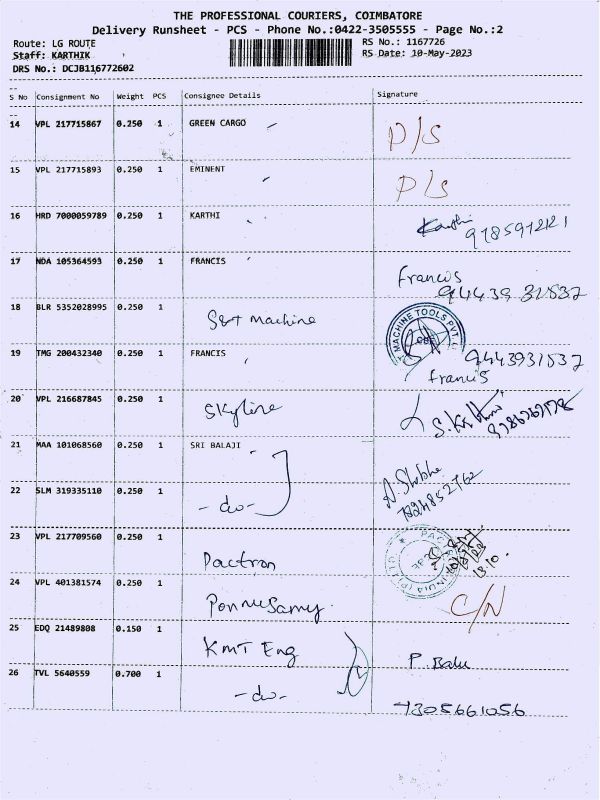 THE PROFESSIONAL COURIERS, COIMBATORE
Delivery Runsheet - PCS - Phone No.:0422-3505555 - Page No.:2
Route: LG ROUTE RS No.: 1167726
Staff: KARTHIK RS Date: 10-May-2023
DRS No.: DCJB116772602
S No Consignment No Weight PCS Consignee Details Signature
14 VPL 217715867 0.250 1 GREEN CARGO P/S
15 VPL 217715893 0.250 1 EMINENT P/S
16 HRD 7000059789 0.250 1 KARTHI Karthi
17 NDA 105364593 0.250 1 FRANCIS Francis
94439 31537
18 BLR 5352028995 0.250 1 S&T machine MACHINE TOOLS PVT.
19 TMG 200432340 0.250 1 FRANCIS 9443931537
francis
20 VPL 216687845 0.250 1 Skyline
21 MAA 101068560 0.250 1 SRI BALAJI
22 SLM 319335110 0.250 1 -do- A. Shobha
23 VPL 217709560 0.250 1 Pactron
24 VPL 401381574 0.250 1 Ponnusamy C/N
25 EDQ 21489808 0.150 1 KMT Eng P. Balu
26 TVL 5640559 0.700 1 -do- 7305661056